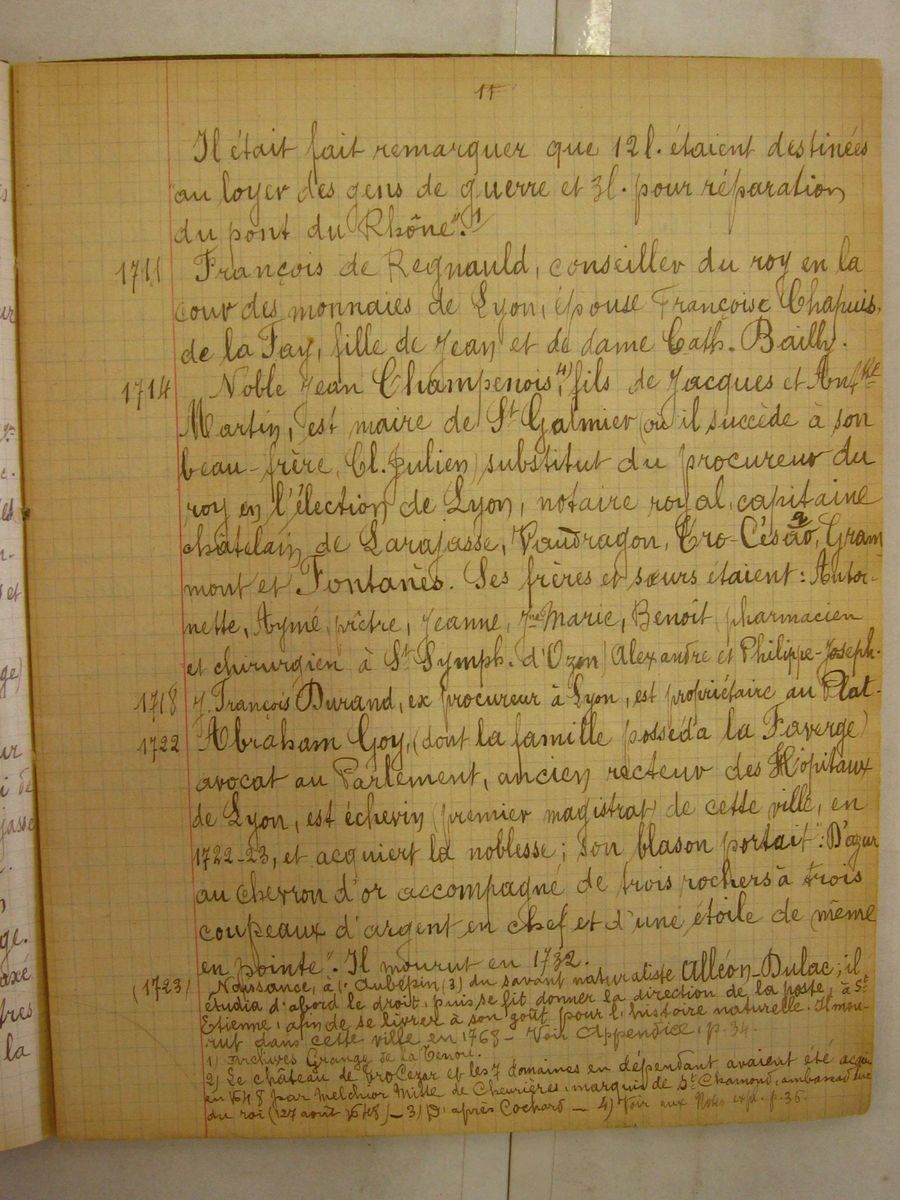 11
Il était fait remarquer que 12 l. étaient destinées
au loyer des gens de guerre et 3 l. pour réparation
du pont du Rhône". 1)
1711 François de Regnauld, conseiller du roy en la
cour des monnaies de Lyon, épouse Françoise Chapuis
de la Fay, fille de Jean et de dame Cath. Bailly.
1714 Noble Jean Champenois, 4) fils de Jacques et
Martin, est maire de St Galmier (où il succède à son
beau-frère, Cl. Julien) substitut du procureur du
roy en l'élection de Lyon, notaire royal, capitaine
châtelain de Larajasse, Vaudragon, Tro-Césao, 2 Gram
mont et Fontanès. Ses frères et sœurs étaient : Antoi-
nette, Aymé, prêtre, Jeanne, Jne Marie, Benoît (pharmacien
et chirurgien à St Symph. d'Ozon) Alexandre et Philippe-Joseph.
1718 J. François Durand, ex procureur à Lyon, est propriétaire au Plat.
1722 Abraham Goy, (dont la famille posséda la Faverge)
avocat au Parlement, ancien recteur des Hôpitaux
de Lyon, est échevin (premier magistrat) de cette ville, en
1722-23, et acquiert la noblesse ; son blason portait : "D'azur
au chevron d'or accompagné de trois rochers à trois
coupeaux d'argent en chef et d'une étoile de même
en pointe". Il mourut en 1732.
(1723) Naissance, à l'Aubépin (3) du savant naturaliste Alléon-Dulac ; il
étudia d'abord le droit, puis se fit donner la direction de la poste, à St
Etienne, afin de se livrer à son goût pour l'histoire naturelle. Il mou-
rut dans cette ville en 1768 - Voir Appendice, p. 34.
1) Archives Grange de la Tenou.
2) Le château de Tro Cezar et les 7 domaines en dépendant avaient été acquis
en 1648 par Melchior Mitte de Chevrières, marquis de St Chamond, ambassadeur
du roi (27 août 1648) - 3) D'après Cochard - 4) Voir aux Notes p. 36.